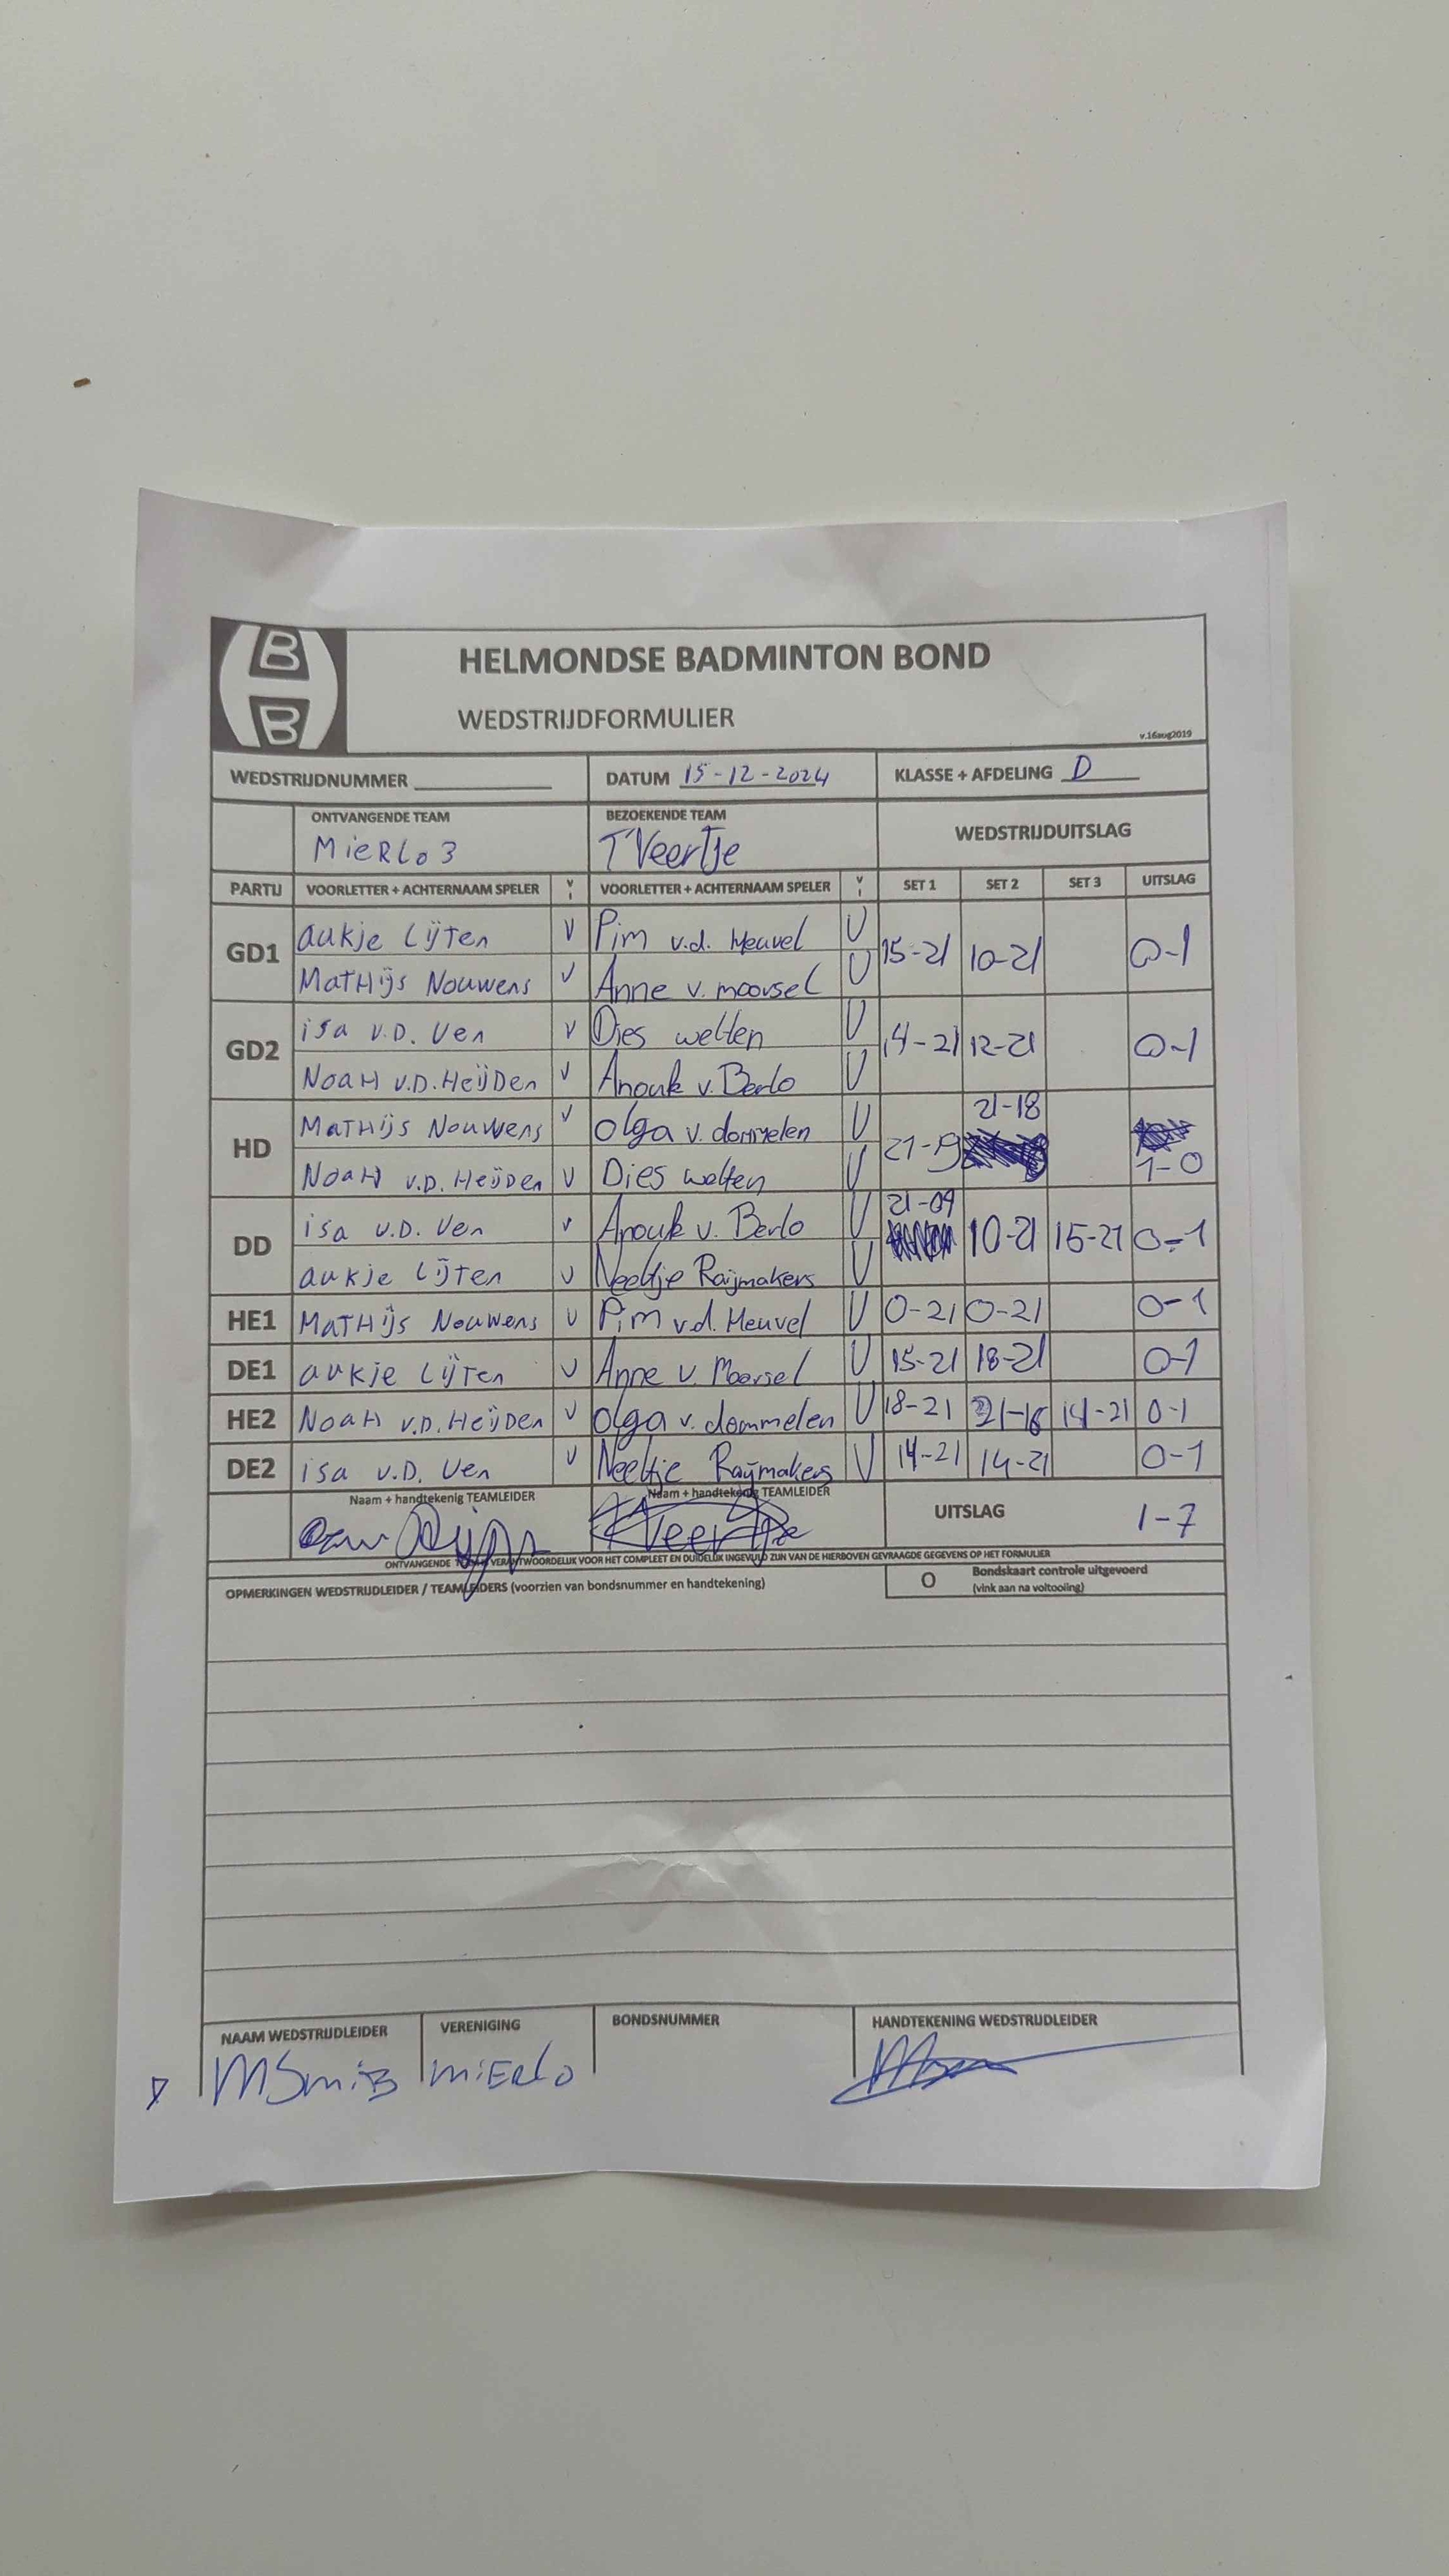 B
B
HELMONDSE BADMINTON BOND
WEDSTRIJDFORMULIER
v.16aug2019
WEDSTRIJDNUMMER DATUM 15-12-2024 KLASSE + AFDELING D
ONTVANGENDE TEAM BEZOEKENDE TEAM WEDSTRIJDUITSLAG
MieRLo 3 T'Veertje
PARTIJ VOORLETTER + ACHTERNAAM SPELER V I VOORLETTER + ACHTERNAAM SPELER V I SET 1 SET 2 SET 3 UITSLAG
GD1 aukje Lijten V Pim v.d. Heuvel V 15-21 10-21 0-1
MatHijs Nouwens V Anne v. moorsel V
GD2 isa v.D. Ven V Dies welten V 14-21 12-21 0-1
NoaH v.D. Heijden V Anouk v. Berlo V
HD MatHijs Nouwens V Olga v. dommelen V 21-19 21-18 1-0
NoaH v.D. Heijden V Dies welten V
DD isa v.D. Ven V Anouk v. Berlo V 21-09 10-21 15-21 0-1
aukje Lijten V Neeltje Raijmakers V
HE1 MatHijs Nouwens V Pim v.d. Heuvel V 0-21 0-21 0-1
DE1 aukje Lijten V Anne v. Moorsel V 15-21 18-21 0-1
HE2 NoaH v.D. Heijden V Olga v. dommelen V 18-21 21-16 14-21 0-1
DE2 isa v.D. Ven V Neeltje Raijmakers V 14-21 14-21 0-1
Naam + handtekenig TEAMLEIDER Naam + handtekenig TEAMLEIDER UITSLAG 1-7
ONTVANGENDE TEAM VERANTWOORDELIJK VOOR HET COMPLEET EN DUIDELIJK INGEVULD ZIJN VAN DE HIERBOVEN GEVRAAGDE GEGEVENS OP HET FORMULIER
OPMERKINGEN WEDSTRIJDLEIDER / TEAMLEIDERS (voorzien van bondsnummer en handtekening) O Bondskaart controle uitgevoerd
(vink aan na voltooiing)
NAAM WEDSTRIJDLEIDER VERENIGING BONDSNUMMER HANDTEKENING WEDSTRIJDLEIDER
miErlo